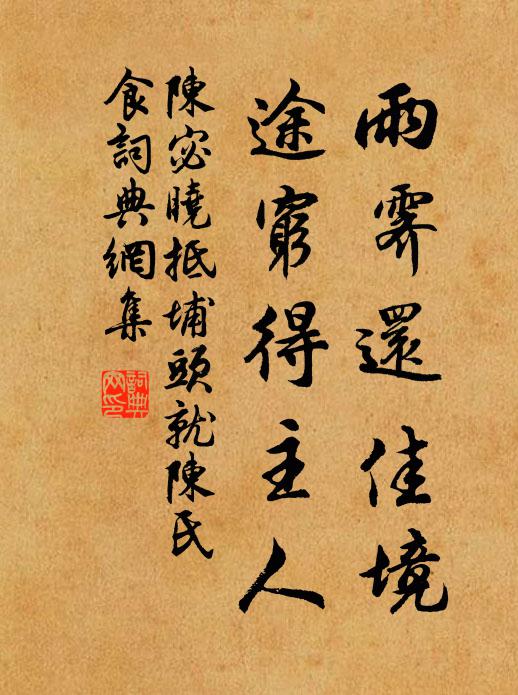 雨霽還佳境
途窮得主人
陳宓曉抵埔頭就陳氏
食詞典網集
詞典
网印